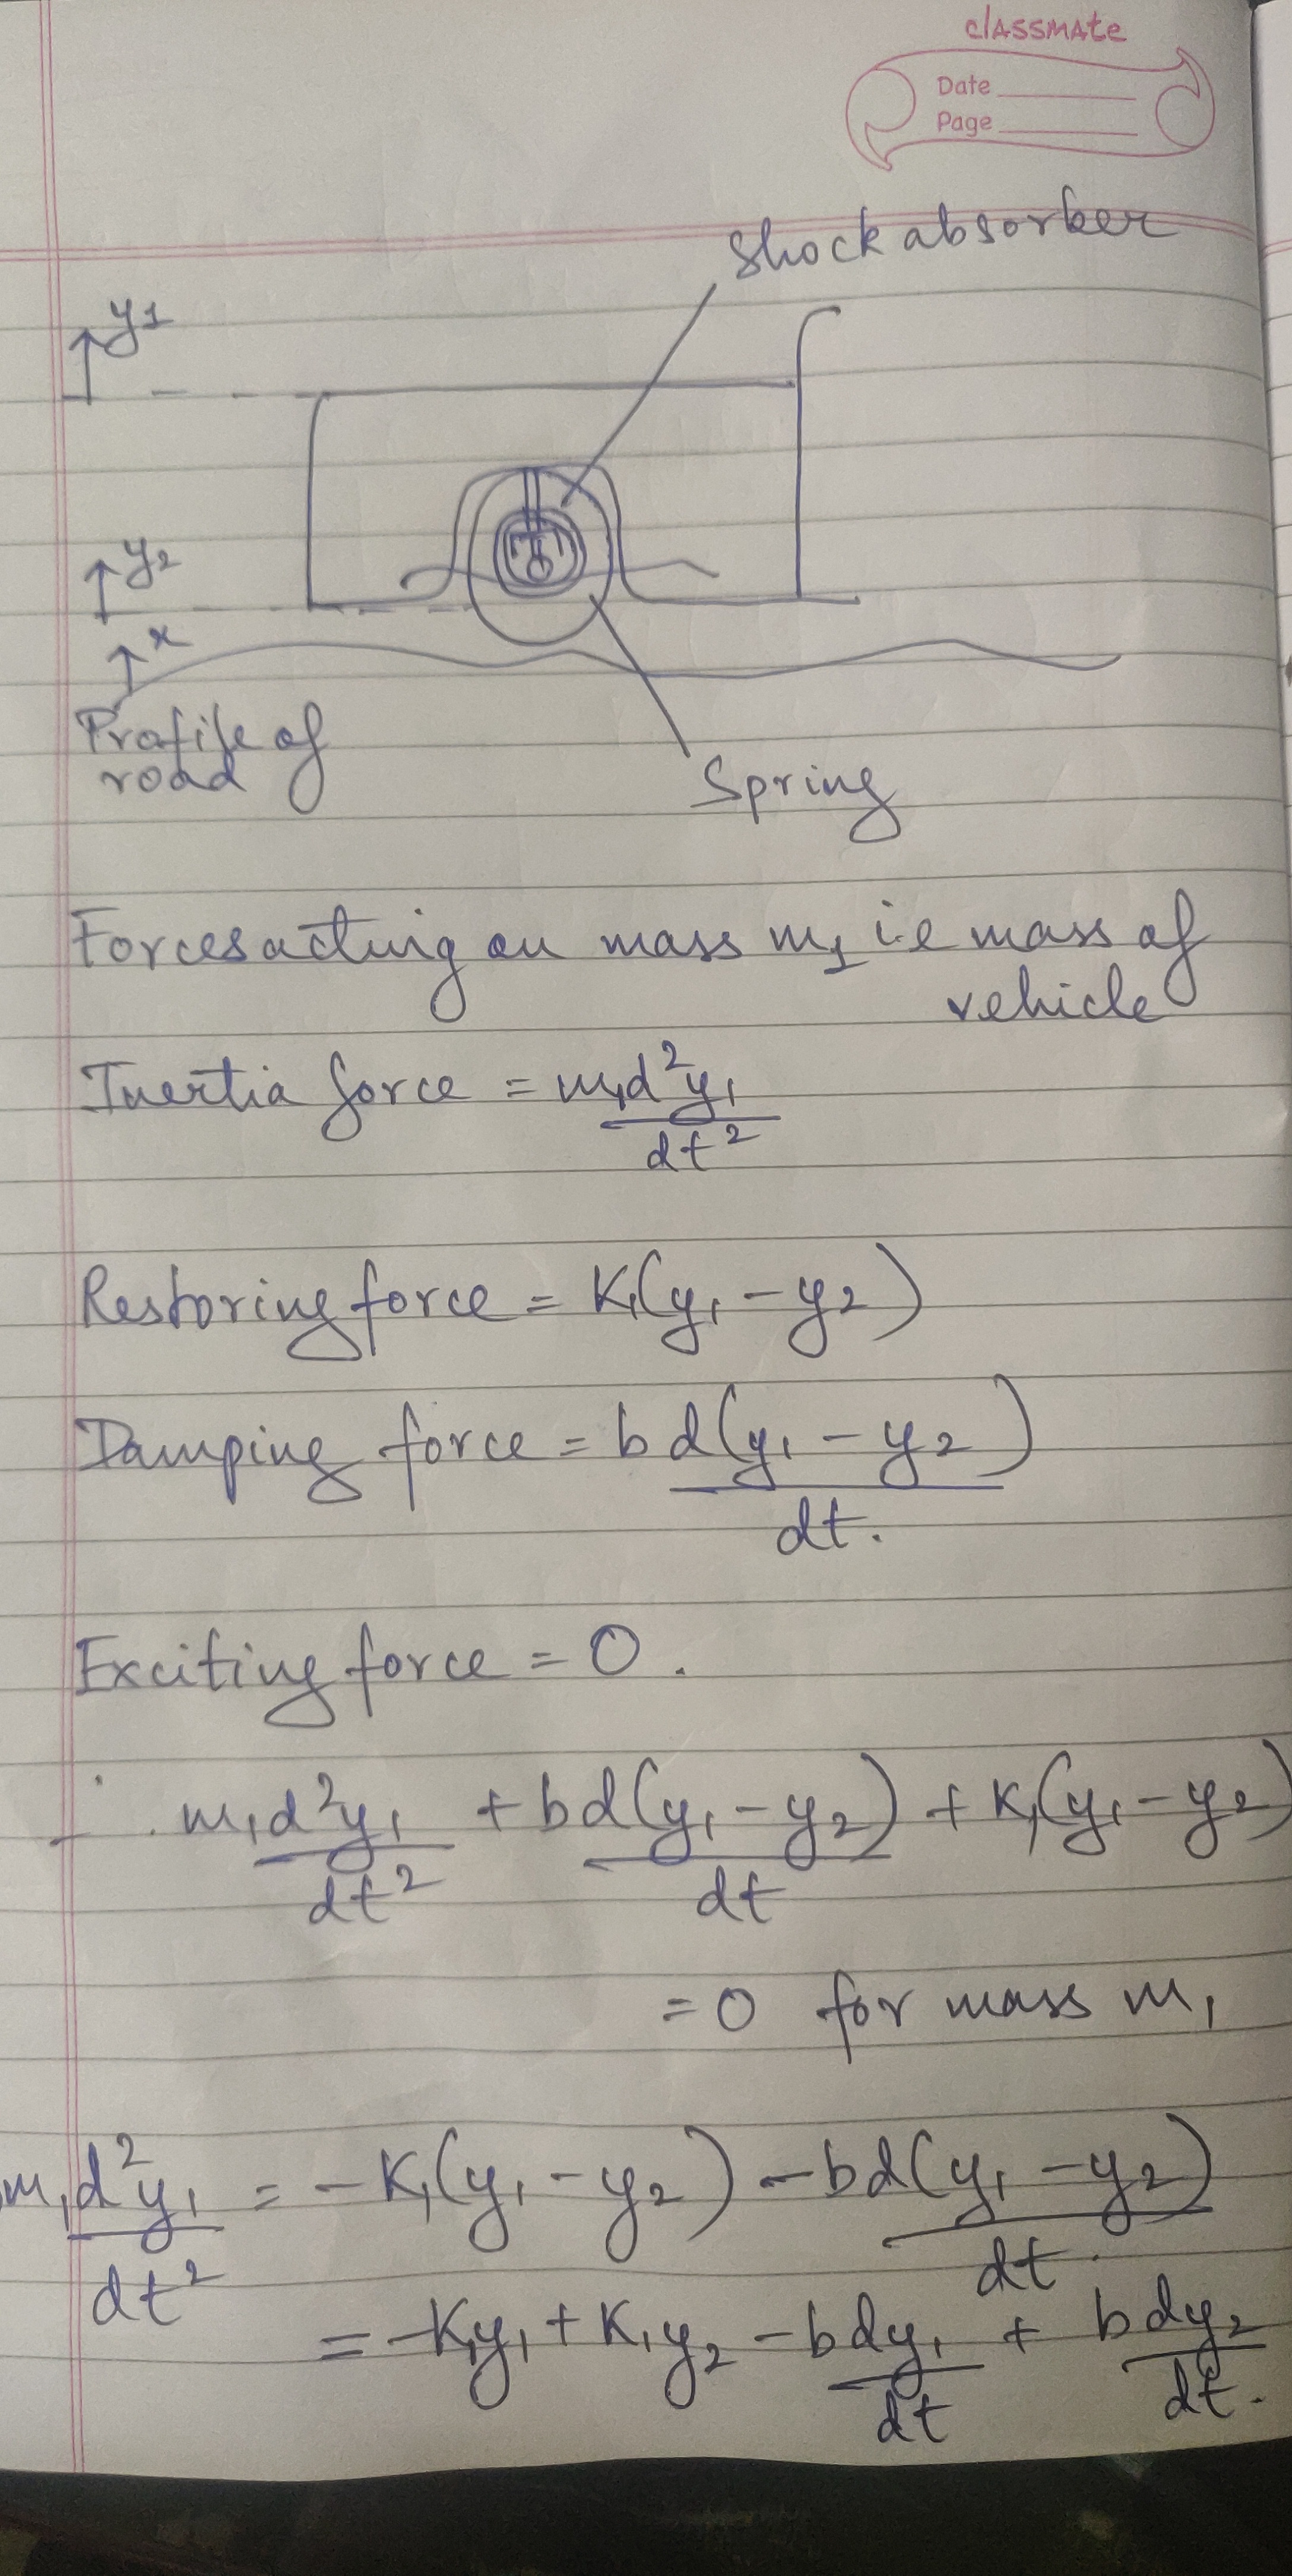 classmate
Date
Page
Shock absorber
y1
y2
x
Profile of
road
Spring
Forces acting on mass m1 i.e mass of
vehicle
Inertia force = m1d²y1/dt²
Restoring force = K1(y1 - y2)
Damping force = b d(y1 - y2)/dt.
Exciting force = 0.
∴ m1d²y1/dt² + b d(y1 - y2)/dt + K1(y1 - y2)
= 0 for mass m1
m1d²y1/dt² = -K1(y1 - y2) - b d(y1 - y2)/dt.
= -K1y1 + K1y2 - b dy1/dt + b dy2/dt.